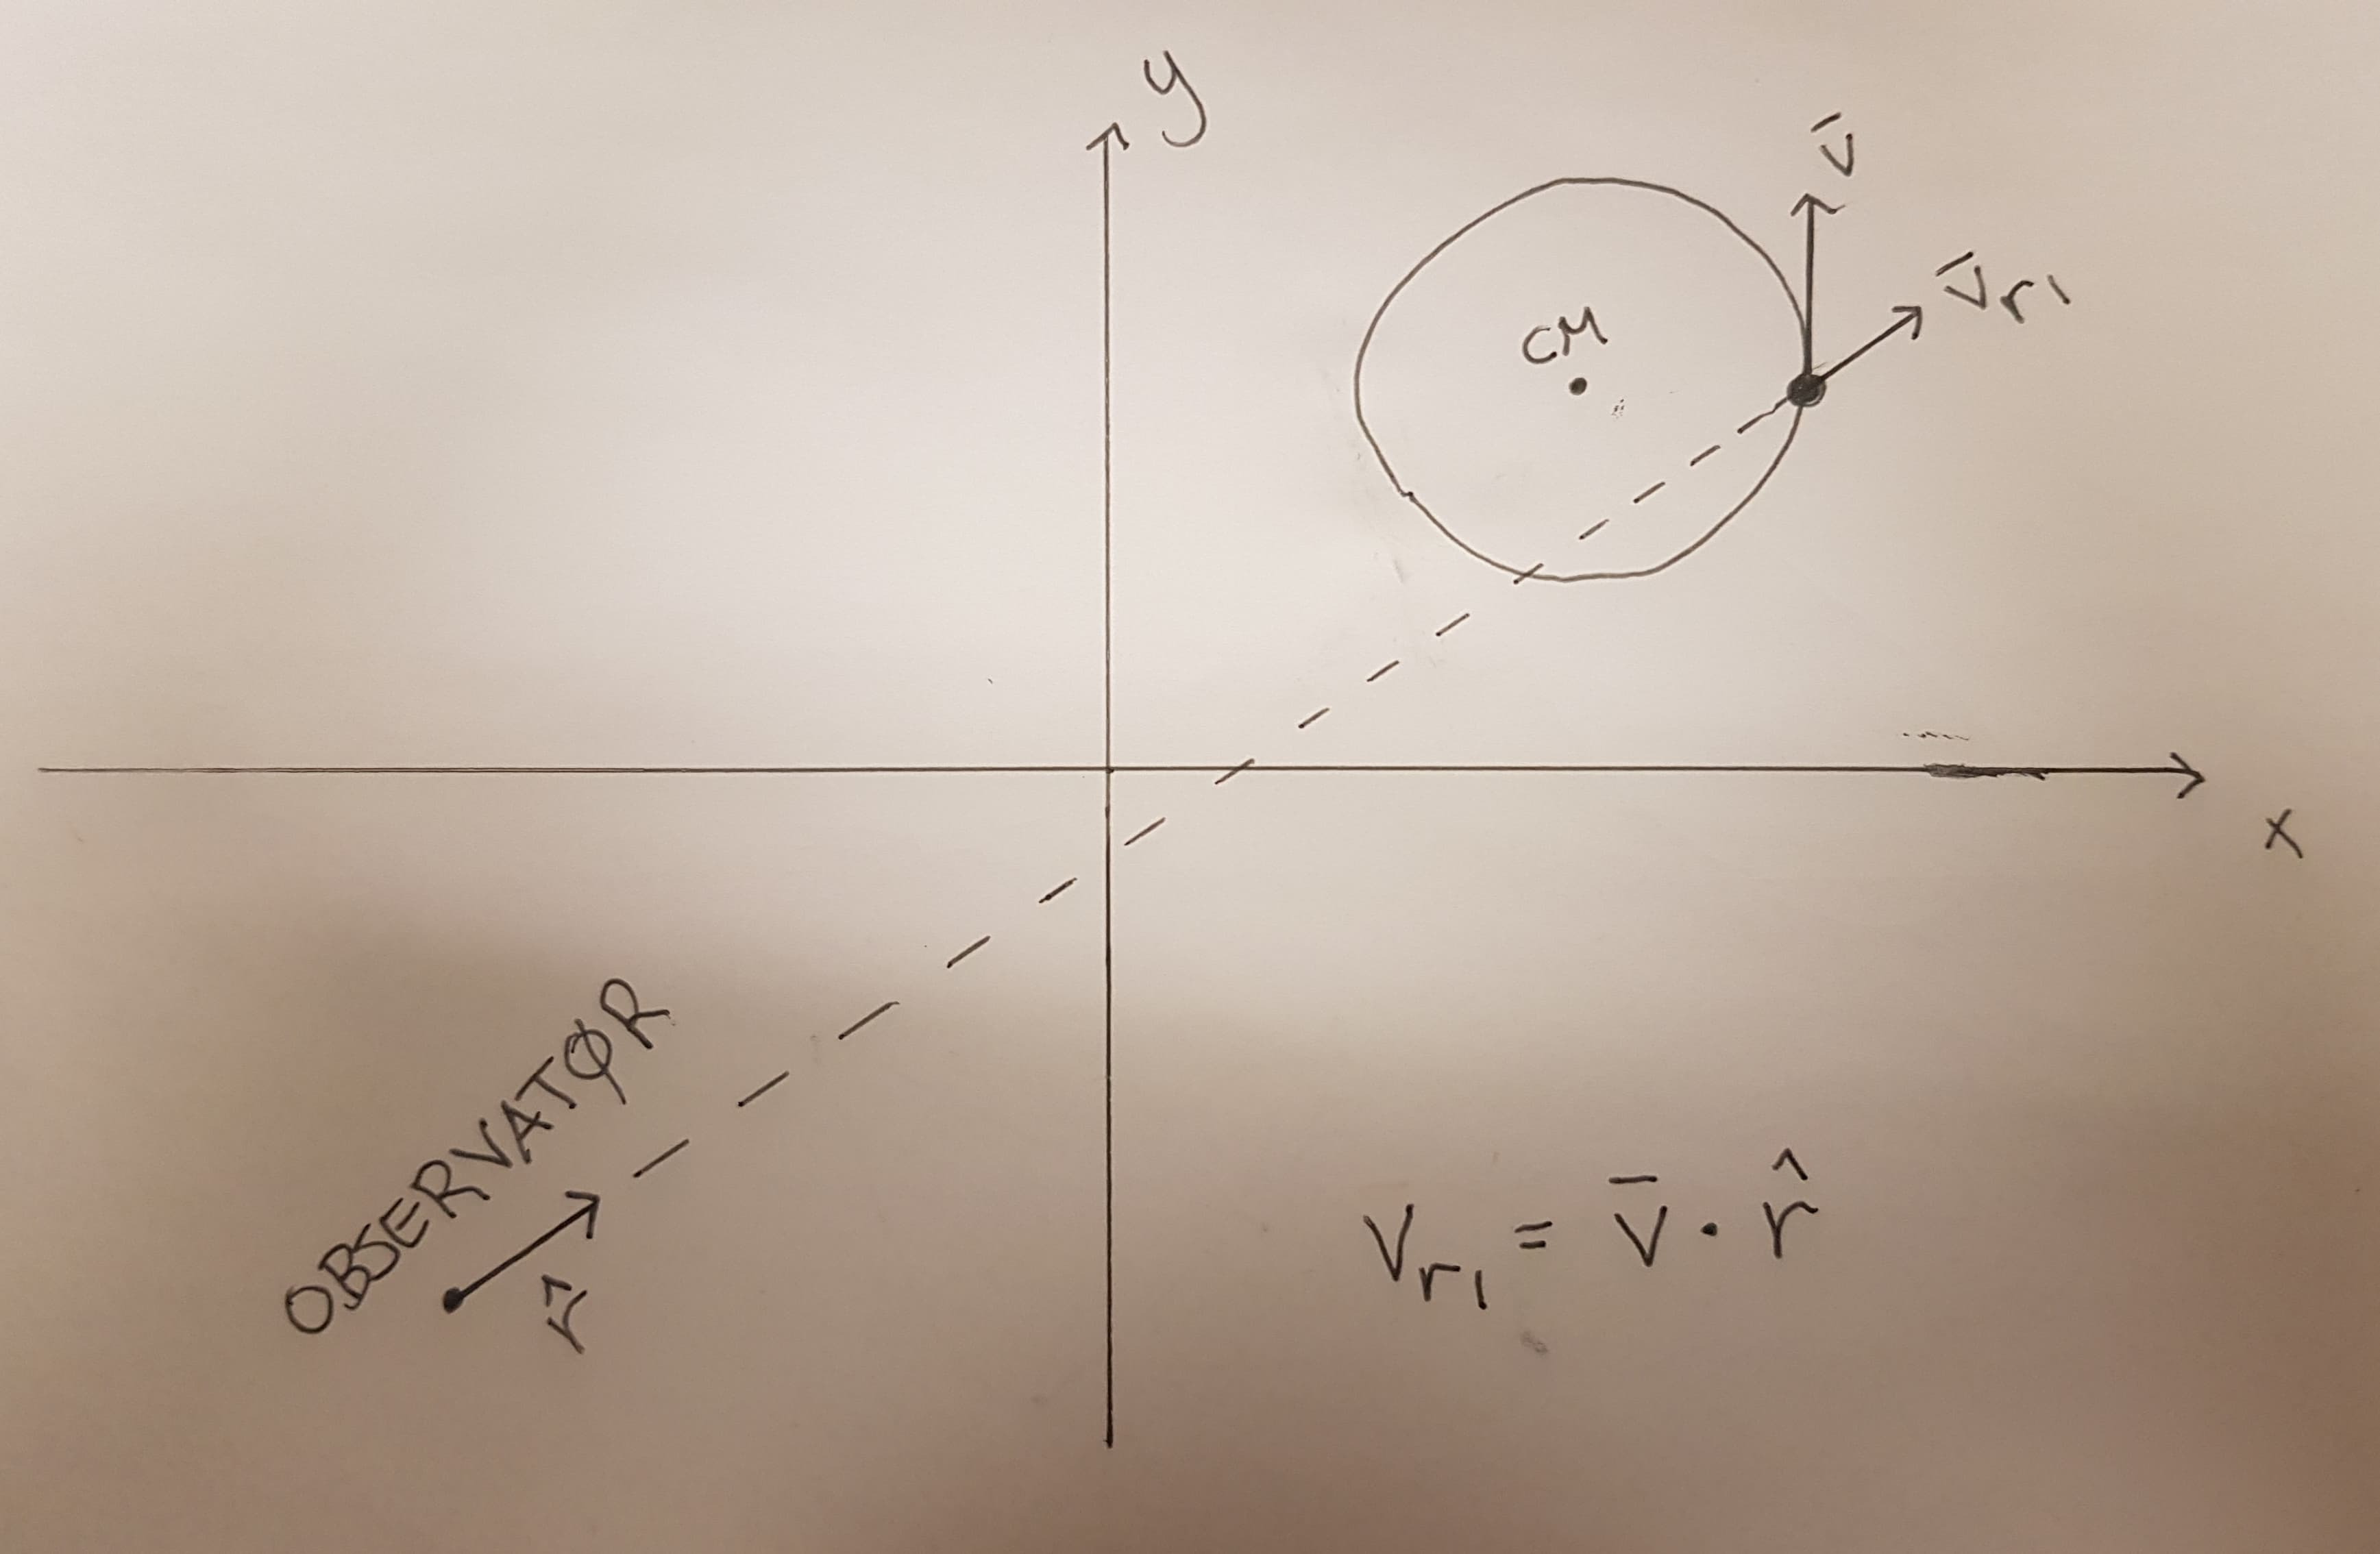 y
v̄
v̄r1
CM
x
OBSERVATØR
r̂
Vr1 = v̄ · r̂